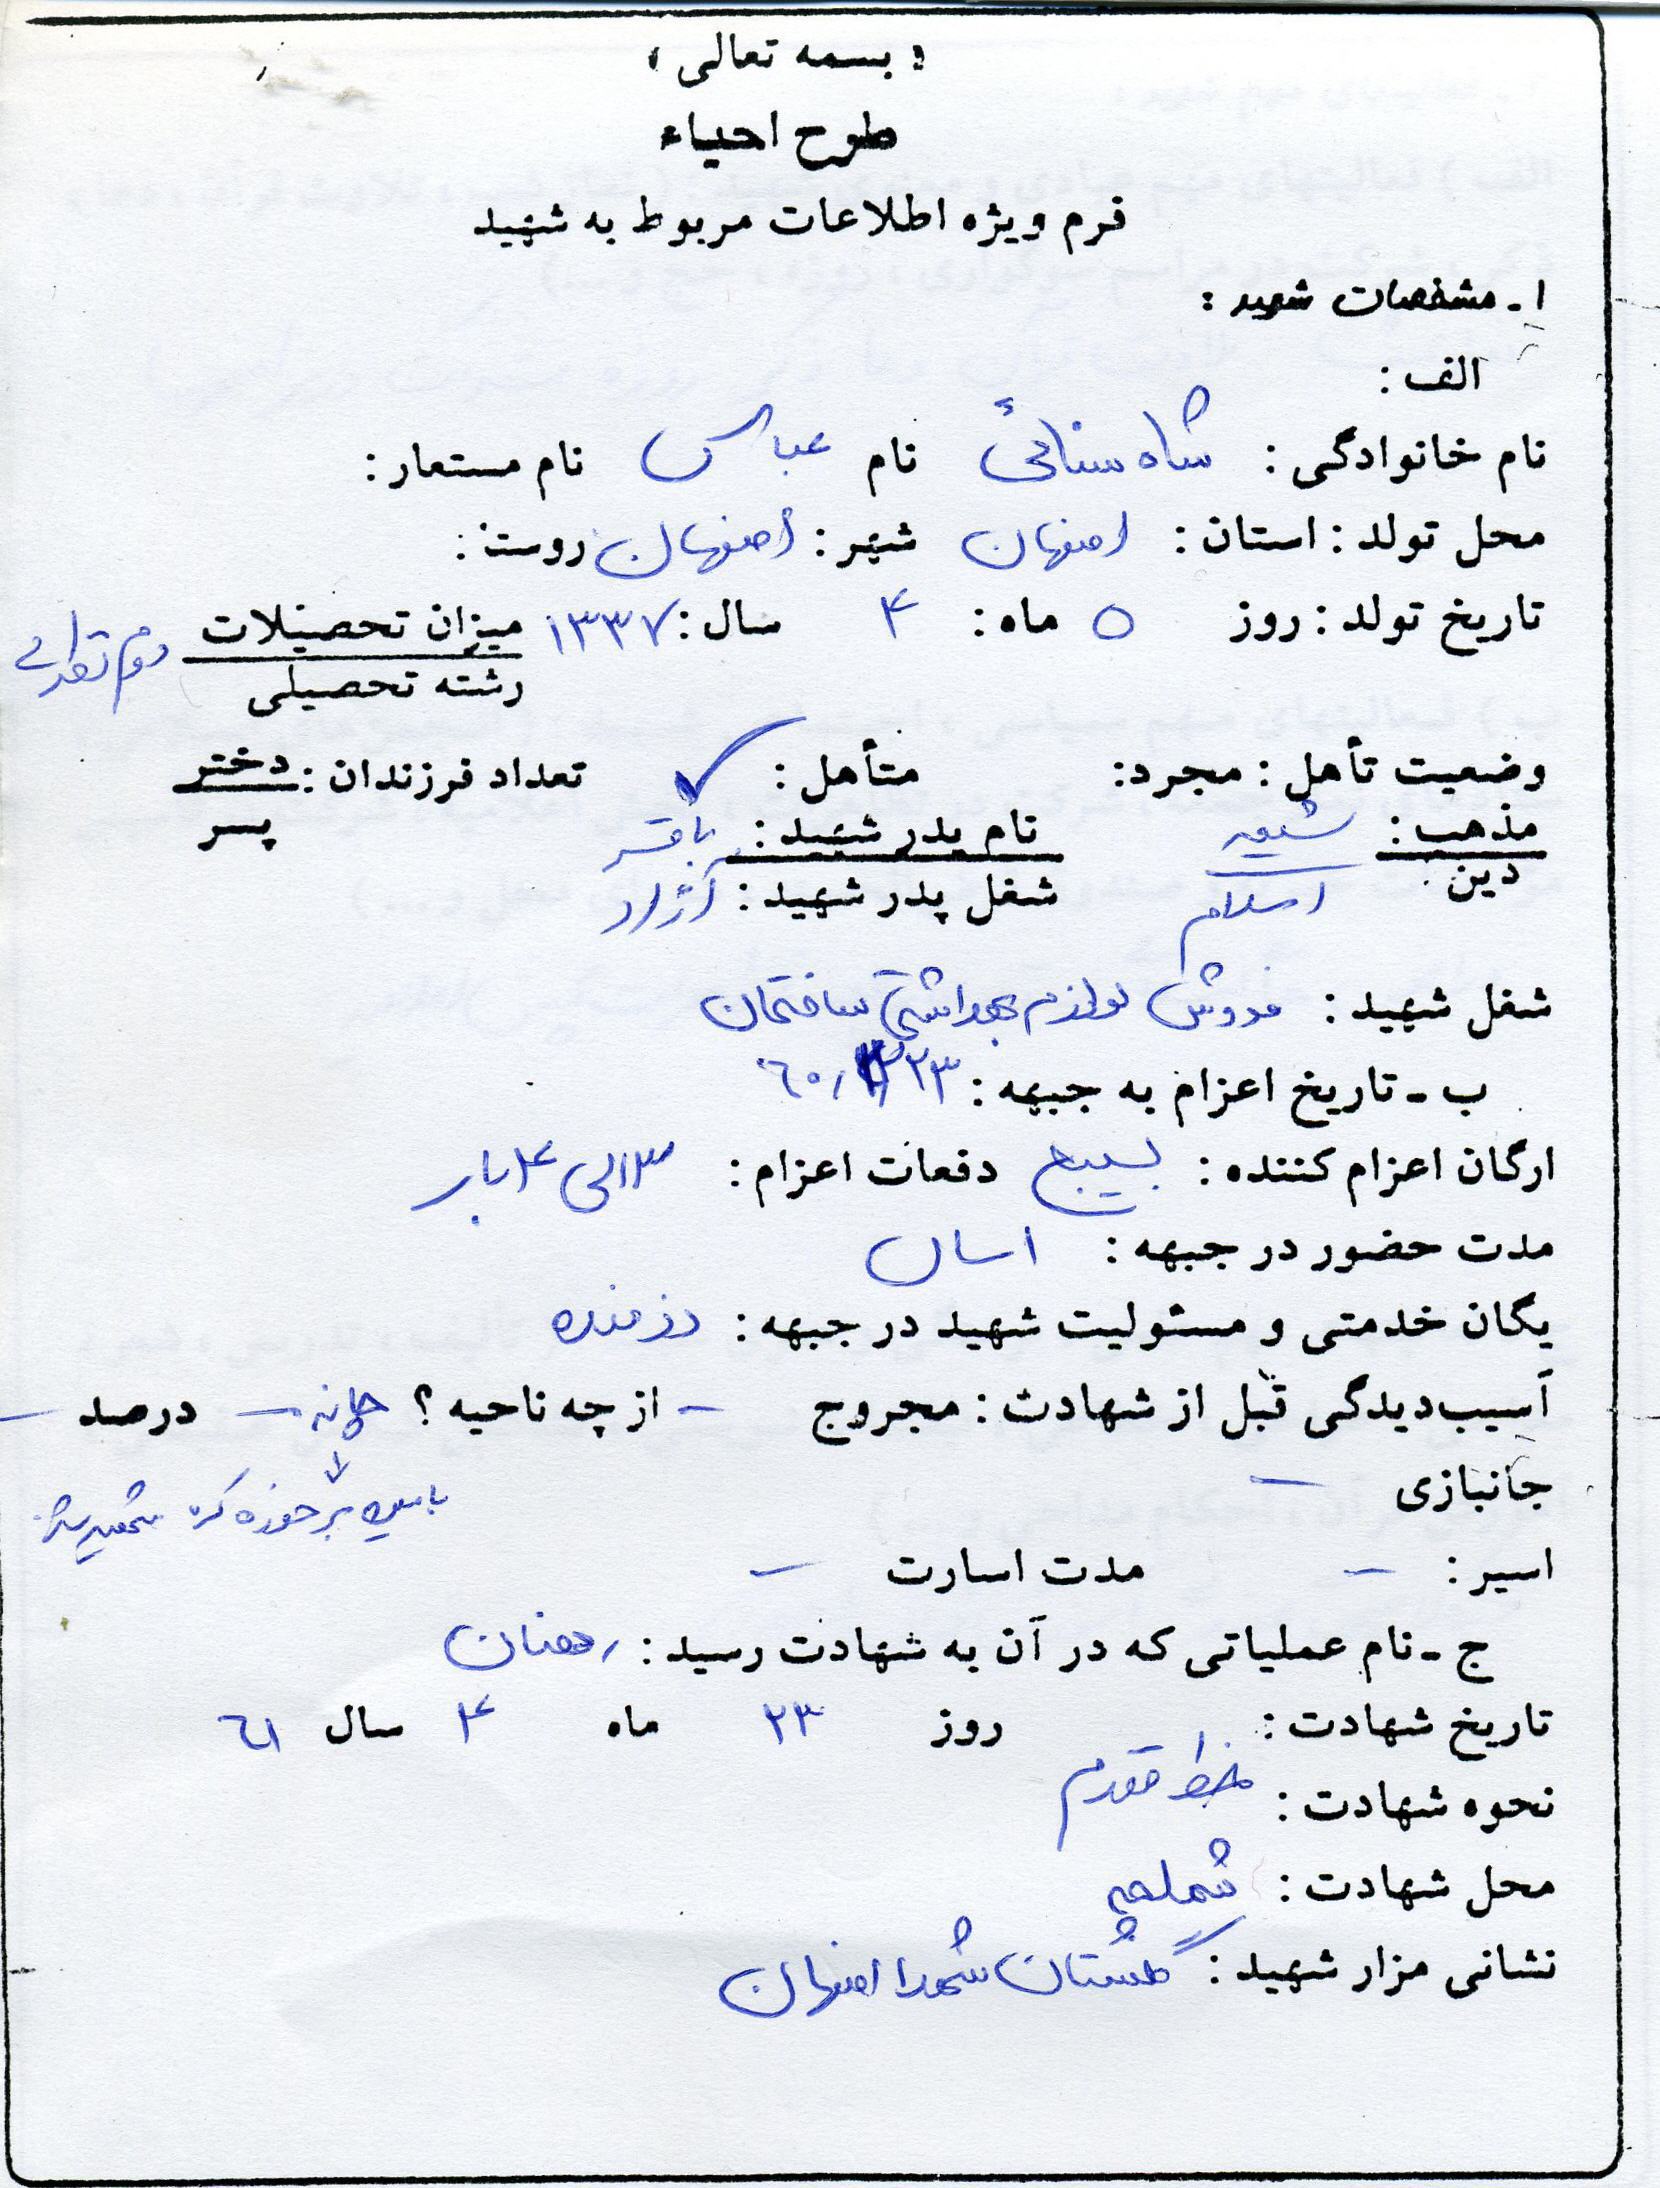 « بسمه تعالی »
طرح احیاء
فرم ویژه اطلاعات مربوط به شهید
۱ـ مشخصات شهید :
الف :
نام خانوادگی : شاه سنائی نام عباس نام مستعار :
محل تولد : استان : اصفهان شهر : اصفهان روستا :
تاریخ تولد : روز ۵ ماه : ۴ سال : ۱۳۳۷ میزان تحصیلات دوم
رشته تحصیلی
وضعیت تأهل : مجرد : متأهل : ✓ تعداد فرزندان : دختر
پسر
مذهب : شیعه نام پدر شهید : باقر
دین اسلام شغل پدر شهید : آزاد
شغل شهید : فروش لوازم بهداشتی ساختمان
ب ـ تاریخ اعزام به جبهه : ۲۳ ۶۰
ارگان اعزام کننده : بسیج دفعات اعزام : ۳ الی ۴ بار
مدت حضور در جبهه : ۱ سال
یگان خدمتی و مسئولیت شهید در جبهه : رزمنده
آسیب‌دیدگی قبل از شهادت : مجروح - از چه ناحیه ؟ چانه - درصد -
جانبازی -
تیر خورده که شهید شد
اسیر : - مدت اسارت -
ج ـ نام عملیاتی که در آن به شهادت رسید : رمضان
تاریخ شهادت : روز ۲۳ ماه ۴ سال ۶۱
نحوه شهادت : خط مقدم
محل شهادت : شلمچه
نشانی مزار شهید : گلستان شهدا اصفهان